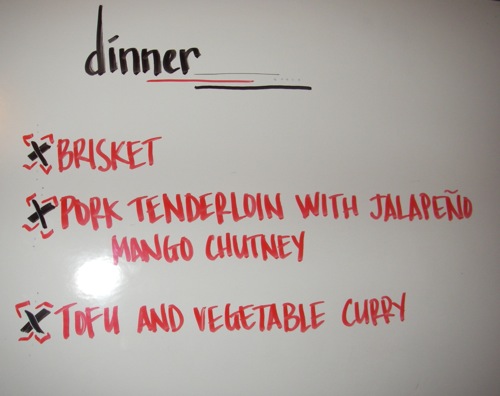 dinner
X BRISKET
X PORK TENDERLOIN WITH JALAPEÑO
MANGO CHUTNEY
X TOFU AND VEGETABLE CURRY